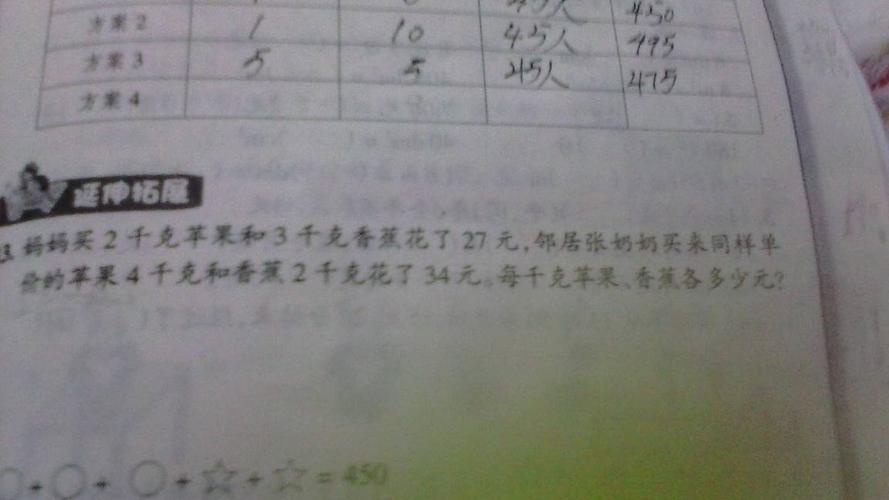 45人 450
方案2 1 10 45人 495
方案3 5 5 45人 475
方案4
延伸拓展
3 妈妈买2千克苹果和3千克香蕉花了27元,邻居张奶奶买来同样单
价的苹果4千克和香蕉2千克花了34元。每千克苹果、香蕉各多少元?
○+○+○+☆+☆=450